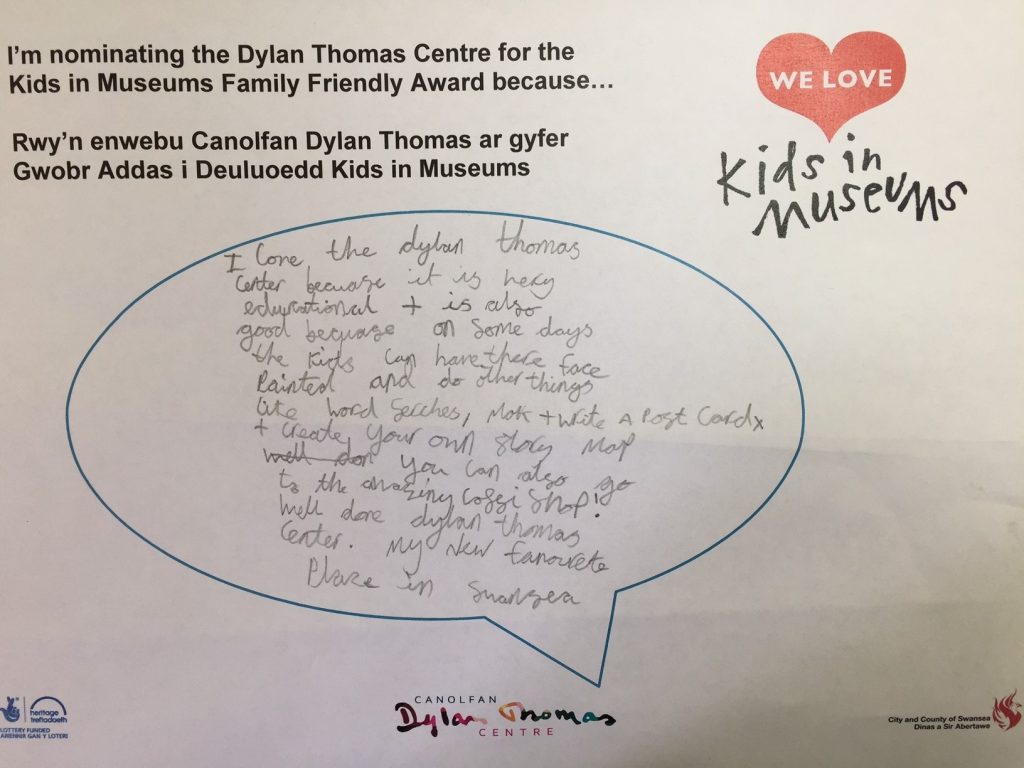 I'm nominating the Dylan Thomas Centre for the
Kids in Museums Family Friendly Award because…
WE LOVE
Kids in
Museums
Rwy'n enwebu Canolfan Dylan Thomas ar gyfer
Gwobr Addas i Deuluoedd Kids in Museums
I Love the dylan thomas
Center becuase it is very
educational + is also
good becuase on some days
the kids can have there face
Painted and do other things
like word serches, + write a Post Card x
+ create your own story map
well don you can also go
to the amazing shop!
Well done dylan thomas
Center. My New favourete
Place in Swansea
heritage
treftadaeth
LOTTERY FUNDED
ARIENNIR GAN Y LOTERI
CANOLFAN
Dylan Thomas
CENTRE
City and County of Swansea
Dinas a Sir Abertawe